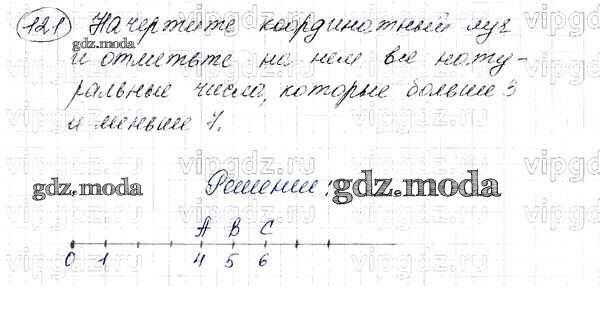 121 Начертите координатный луч
gdz.moda
и отметьте на нем все нату-
ральные числа, которые больше 3
и меньше 7.
vipgdz.ru vipgdz.ru vipgdz.ru
gdz.moda Решение: gdz.moda
A B C
0 1 4 5 6